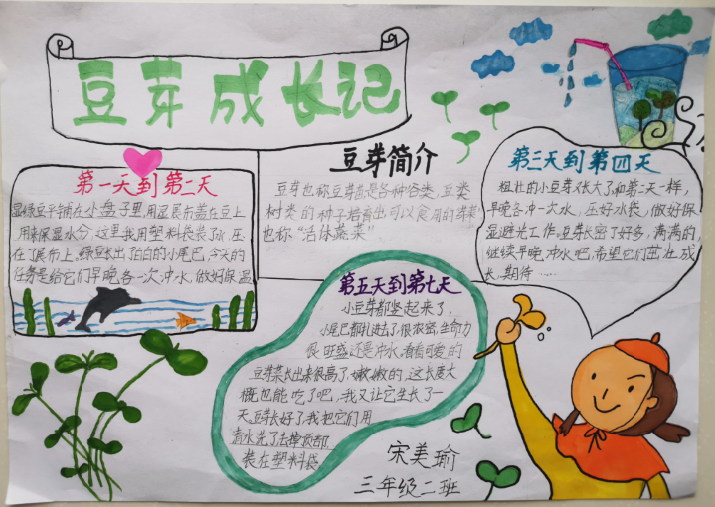 豆芽成长记
豆芽简介
豆芽也称豆芽苗是各种谷类、豆类
树类的种子培育出可以食用的芽菜
也称“活体蔬菜”
第一天到第二天
湿绿豆平铺在小盘子里,用湿展布盖在豆上
用来保湿水分,这里我用塑料袋装了水,压
在了展布上,绿豆长出了白白的小尾巴,今天的
任务是给它们早晚各一次冲水,做好保温
第三天到第四天
粗壮的小豆芽又张大了和第二天一样,
早晚各冲一次水,压好水袋,做好保
湿避光工作,豆芽长密了好多,满满的
继续早晚冲水吧,希望它们茁壮成
长,期待……
第五天到第七天
小豆芽都竖起来了,
小尾巴都扎进去了很浓密,生命力
很旺盛还是冲水,看着可爱的
豆芽菜长出来很高了,嫩嫩的,这长度大
概也能吃了吧,我又让它生长了一
天豆芽长好了,我把它们用
清水洗了去掉皮部
装在塑料袋
宋美瑜
三年级二班